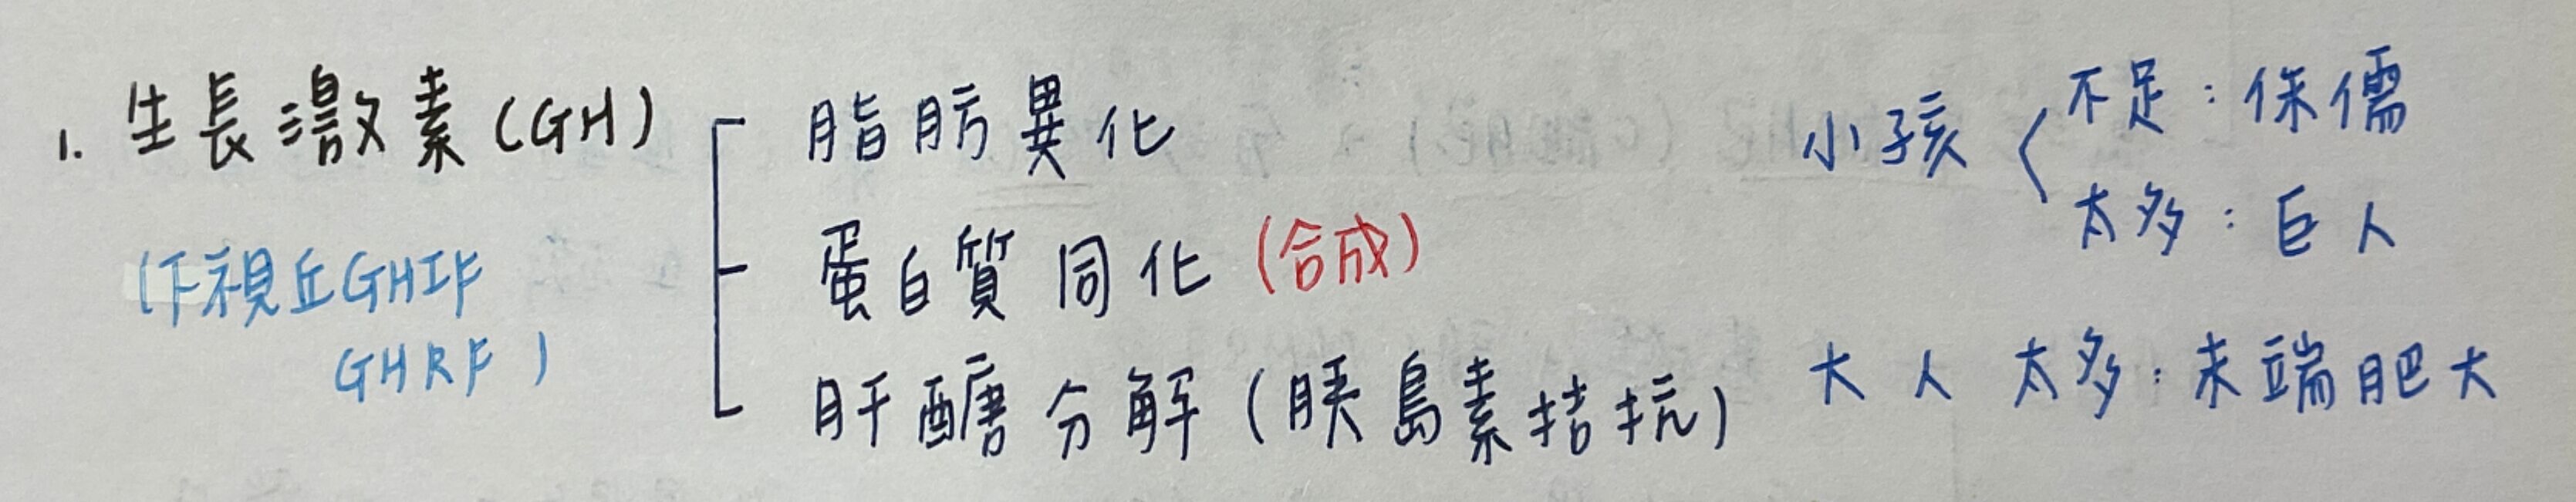 1. 生長激素(GH)
(下視丘GHIF
GHRF)
脂肪異化
蛋白質同化(合成)
肝醣分解(胰島素拮抗)
小孩
不足:侏儒
太多:巨人
大人 太多:末端肥大